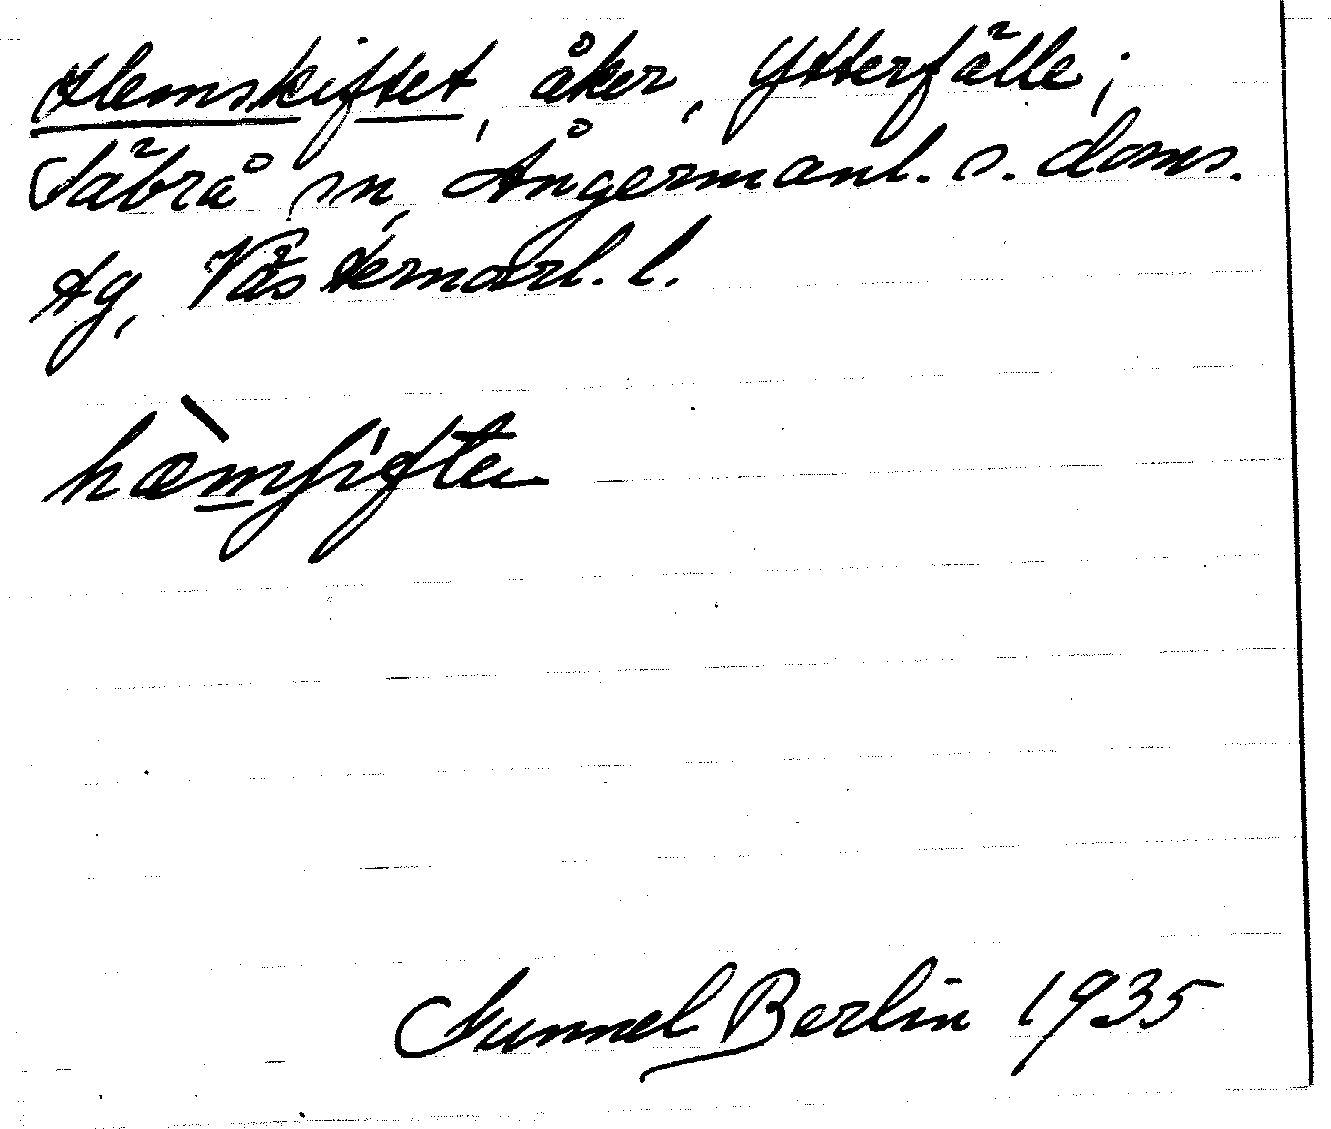 Hemskiftet, åker, Ytterfälle;
Säbrå sn, Ångermanl. s. doms.
tg, Västernorrl. l.
hæ̀m̲ʃifte
Gunnel Berlin 1935